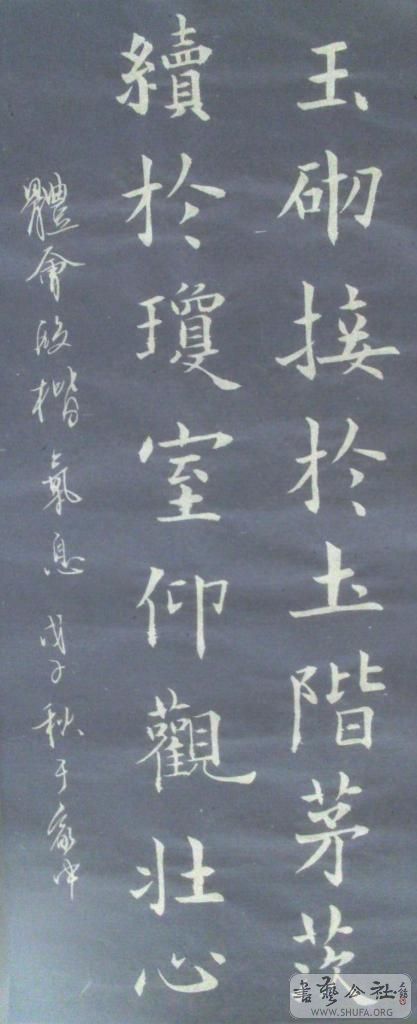 玉砌接於土階茅茨
續於瓊室仰觀壯心
體會欧楷氣息 戊子秋于家中
書藝公社
WWW.SHUFA.ORG